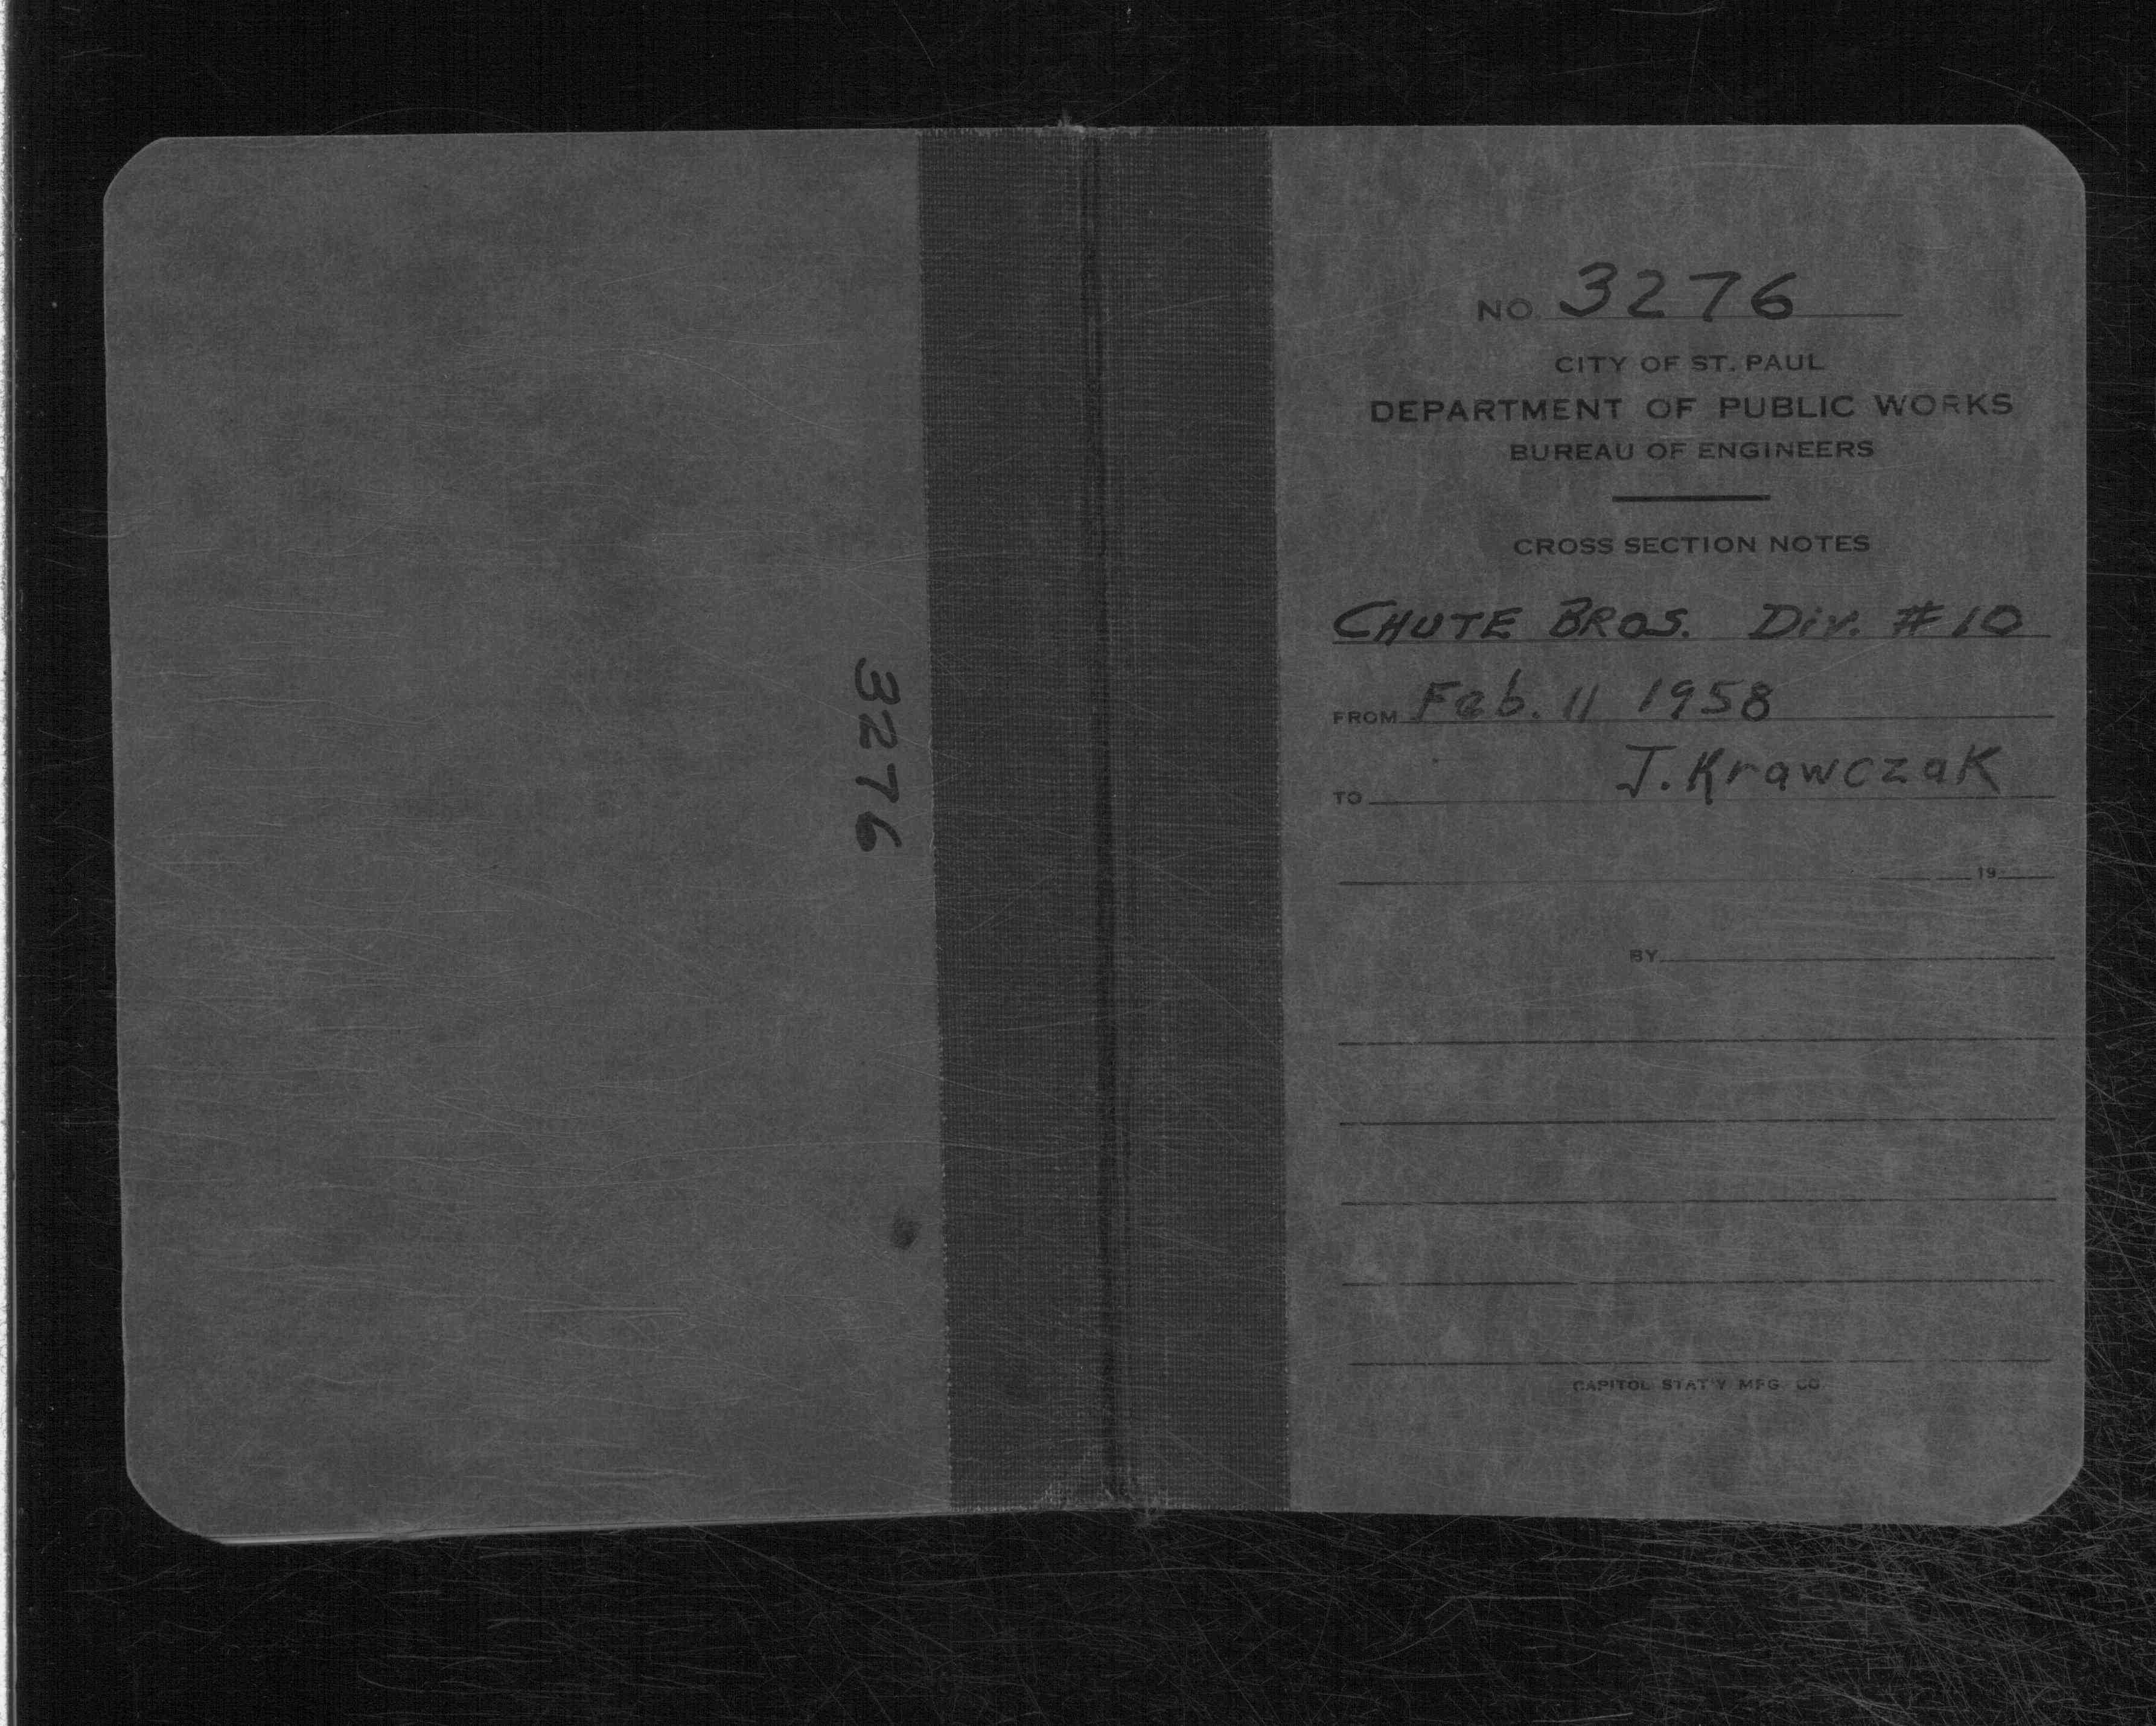 3276
NO. 3276
CITY OF ST. PAUL
DEPARTMENT OF PUBLIC WORKS
BUREAU OF ENGINEERS
CROSS SECTION NOTES
CHUTE BROS. Div. #10
FROM Feb. 11 1958
TO J. Krawczak
19
BY
CAPITOL STAT'Y MFG. CO.